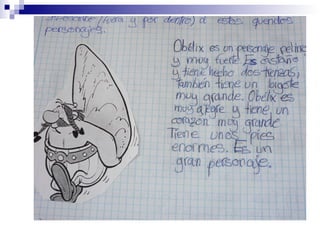 (fuera y por dentro) a estos queridos
personajes.
Obélix es un personaje pelirro
y muy fuerte. Es castaño
y tiene hecho dos trenzas,
también tiene un bigote
muy grande. Obélix es
muy alegre y tiene, un
corazón muy grande.
Tiene unos pies
enormes. Es un
gran personaje.